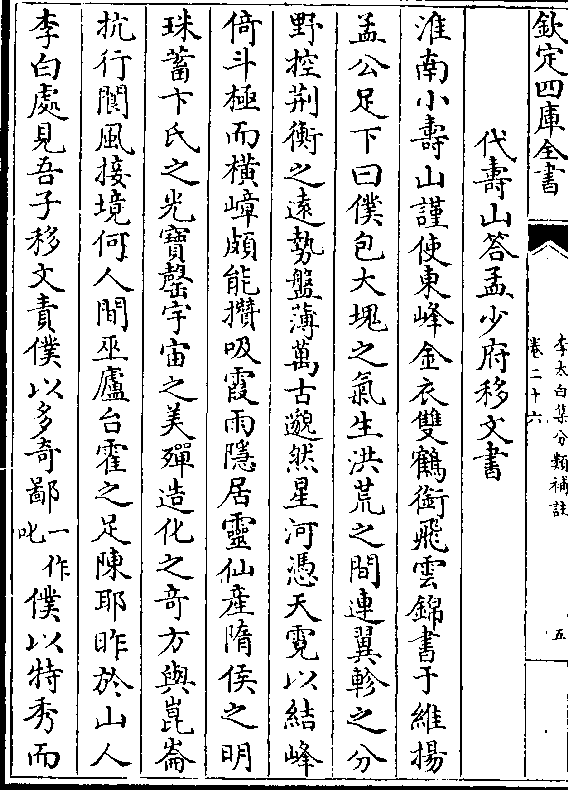 欽定四庫全書
李太白集分類補註
卷二十六
五
代壽山答孟少府移文書
淮南小壽山謹使東峰金衣雙鶴銜飛雲錦書于維揚
孟公足下曰僕包大塊之氣生洪荒之間連翼軫之分
野控荆衡之遠勢盤薄萬古邈然星河憑天霓以結峰
倚斗極而橫嶂頗能攢吸霞雨隱居靈仙產隋侯之明
珠蓄卞氏之光寶罄宇宙之美殫造化之奇方與崑崙
抗行閬風接境何人間巫廬台霍之足陳耶昨於山人
李白處見吾子移文責僕以多奇鄙一作叱僕以特秀而